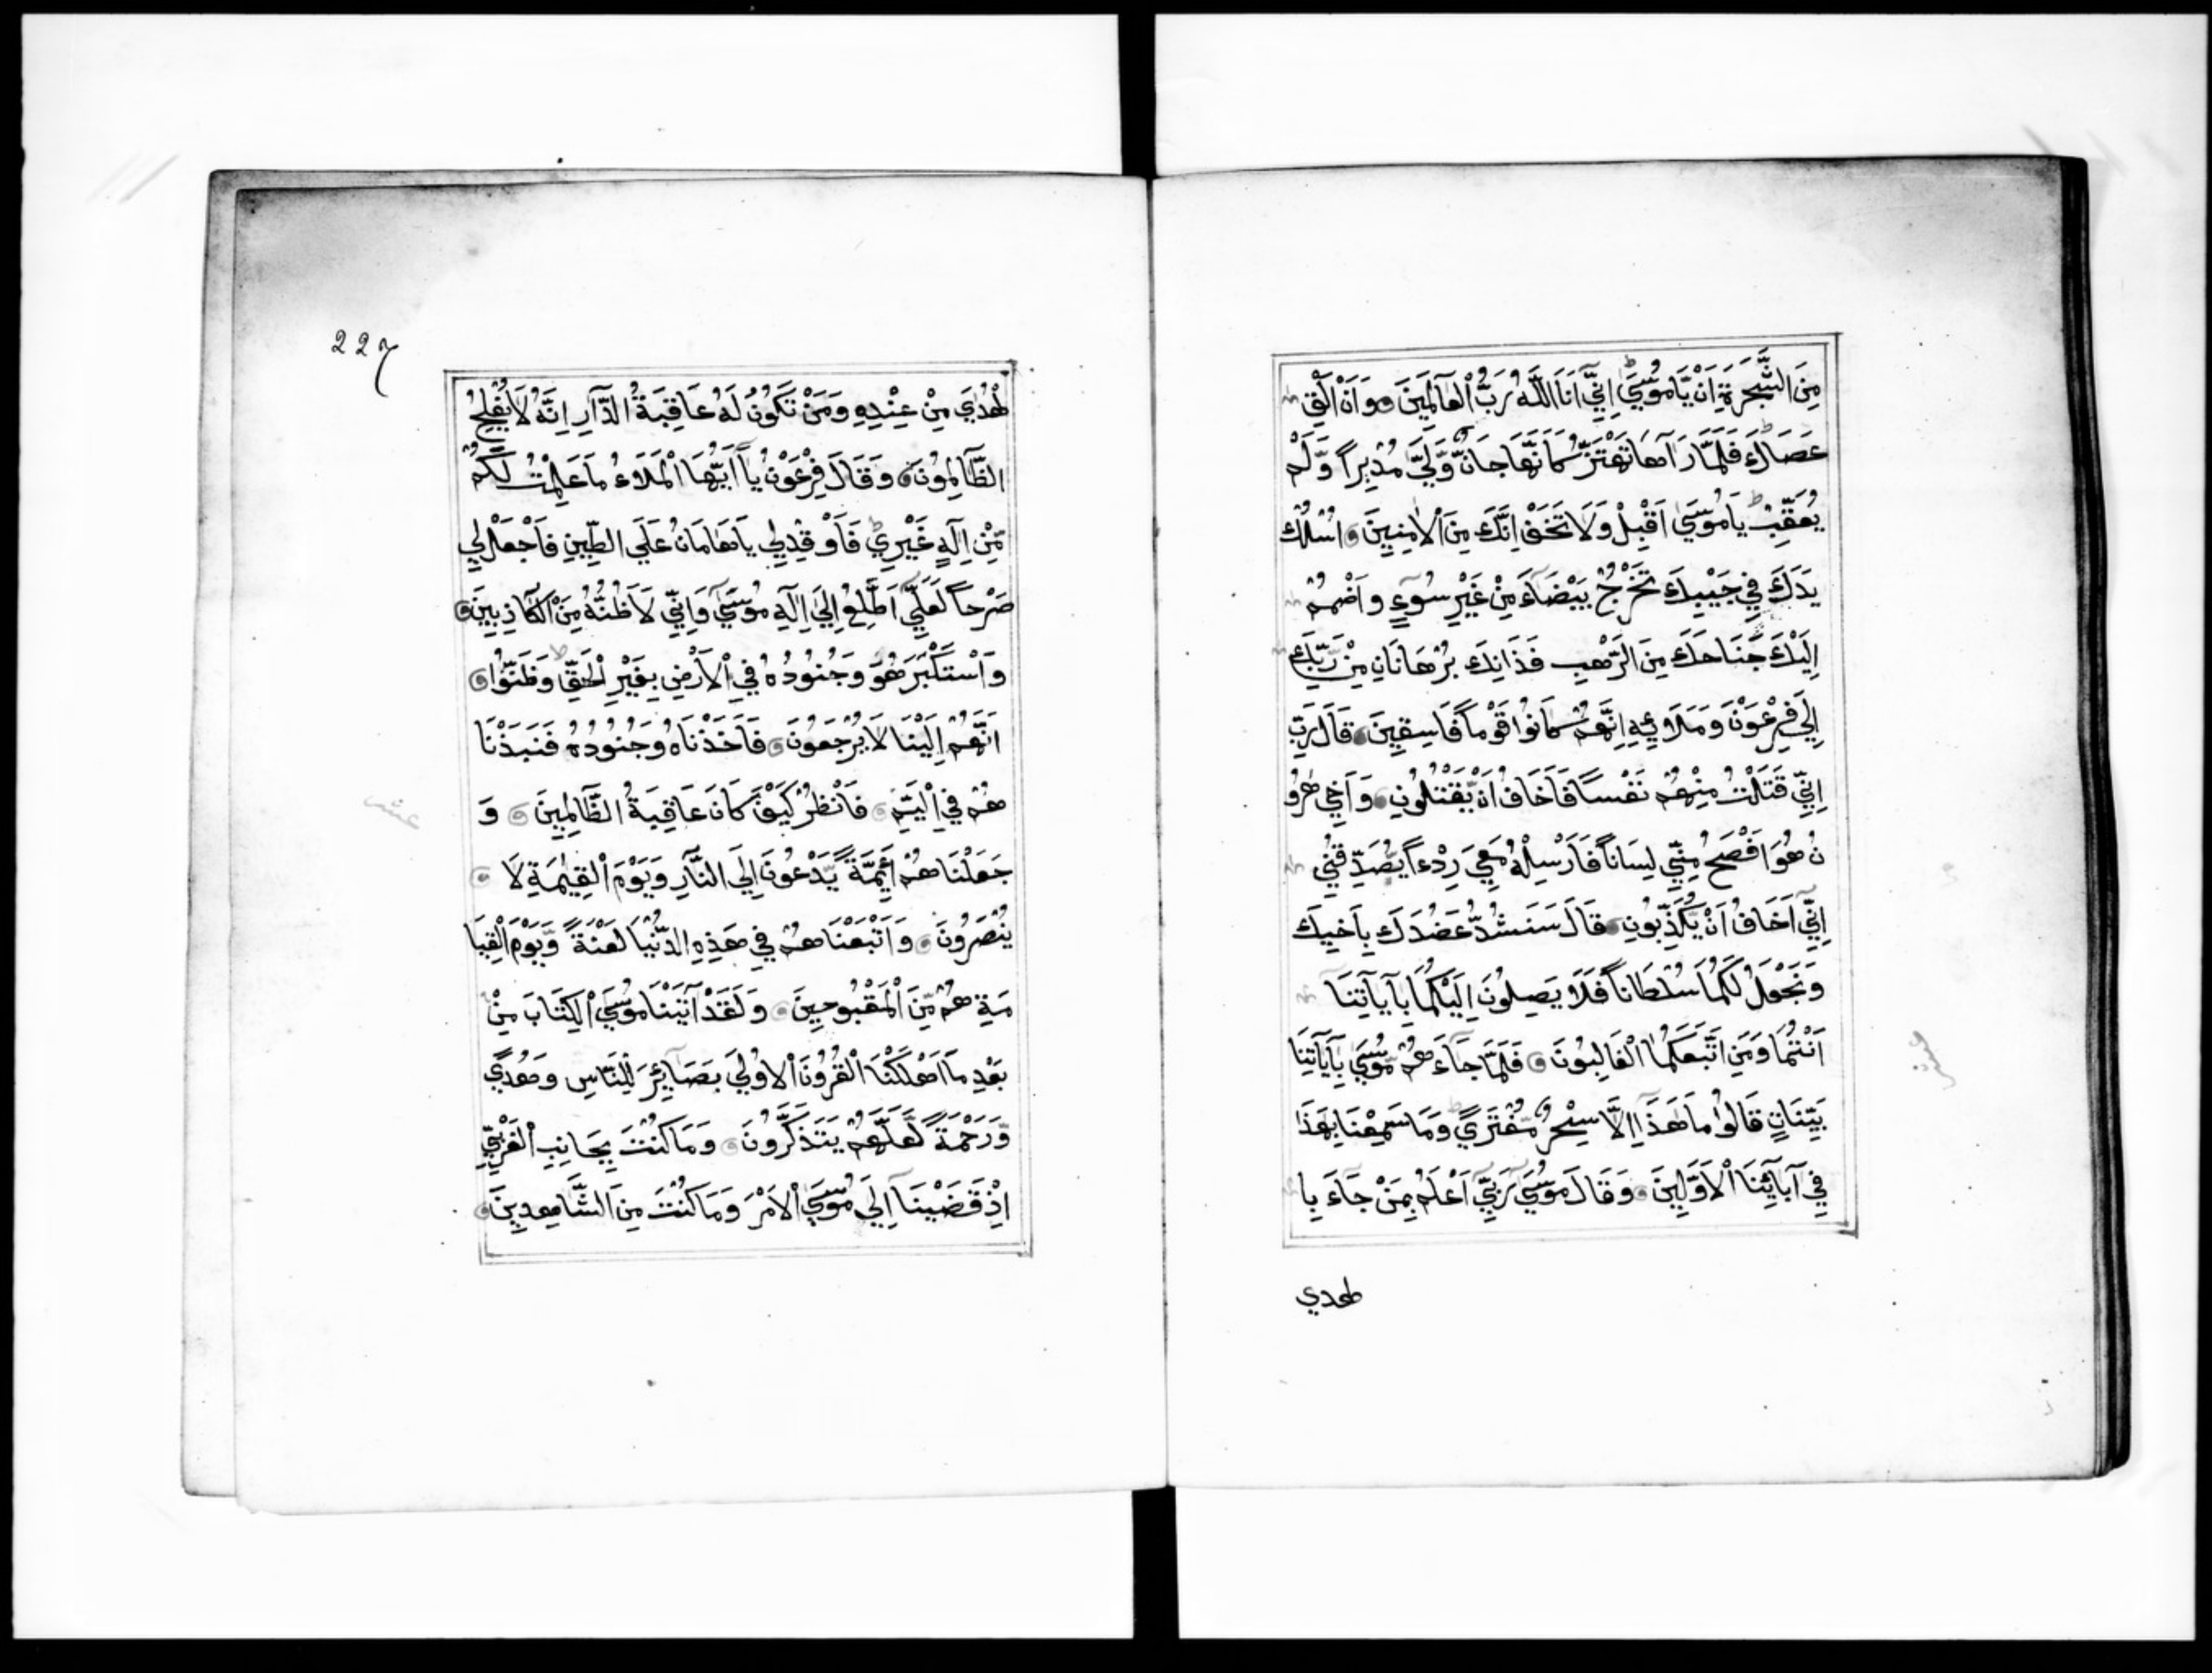 مِنَ الشَّجَرَةِ اَنْ يَّامُوْسَيٰ اِنِّيْٓ اَنَا اللَّهُ رَبُّ الْعَآلَمِيْنَ وَ وَاَنْ اَلْقِ
عَصَاكَ فَلَمَّا رَآهَا تَهْتَزُّ كَاَنَّهَا جَانٌّ وَّلَيّٰ مُدْبِراً وَّلَمْ
يُعَقِّبْ يَامُوْسَيٰ اَقْبِلْ وَلَا تَخَفْ اِنَّكَ مِنَ الْاٰمِنِيْنَ اُسْلُكْ
يَدَكَ فِيْ جَيْبِكَ تَخْرُجْ بَيْضَآءَ مِنْ غَيْرِ سُوْءٍ وَاضْمُمْ
اِلَيْكَ جَنَاحَكَ مِنَ الرَّهْبِ فَذَانِكَ بُرْهَانَانِ مِنْ رَّبِّكَ
اِلَيٰ فِرْعَوْنَ وَمَلَاۡئِهِ اِنَّهُمْ كَانُوْا قَوْماً فَاسِقِيْنَ قَالَ رَبِّ
اِنِّيْ قَتَلْتُ مِنْهُمْ نَفْساً فَاَخَافُ اَنْ يَّقْتُلُوْنِ وَاَخِيْ هٰرُو
نُ هُوَ اَفْصَحُ مِنِّيْ لِسَاناً فَاَرْسِلْهُ مَعِيَ رِدْءاً يُّصَدِّقُنِيْ
اِنِّيْٓ اَخَافُ اَنْ يُّكَذِّبُوْنِ قَالَ سَنَشُدُّ عَضُدَكَ بِاَخِيْكَ
وَنَجْعَلُ لَكُمَا سُلْطَاناً فَلَا يَصِلُوْنَ اِلَيْكُمَا بِآيَاتِنَا
اَنْتُمَا وَمَنِ اتَّبَعَكُمَا الْغَالِبُوْنَ فَلَمَّا جَآءَهُمْ مُّوْسَيٰ بِآيَاتِنَا
بَيِّنَاتٍ قَالُوْا مَا هٰذَآ اِلَّا سِحْرٌ مُّفْتَرَيً وَمَا سَمِعْنَا بِهٰذَا
فِيْ آبَآئِنَا الْاَوَّلِيْنَ وَقَالَ مُوْسَيٰ رَبِّيْٓ اَعْلَمُ بِمَنْ جَآءَ بِا
طهدي
227
لْهُدَيٰ مِنْ عِنْدِهِ وَمَنْ تَكُوْنُ لَهُ عَاقِبَةُ الدَّآرِ اِنَّهُ لَا يُفْلِحُ
الظَّآلِمُوْنَ وَقَالَ فِرْعَوْنُ يَآ اَيُّهَا الْمَلَاءُ مَا عَلِمْتُ لَكُمْ
مِّنْ اِلَآهٍ غَيْرِيْ فَاَوْقِدْ لِيْ يَاهَامَانُ عَلَي الطِّيْنِ فَاجْعَلْ لِيْ
صَرْحاً لَعَلِّيْٓ اَطَّلِعُ اِلَيٰ اِلَآهِ مُوْسَيٰ وَاِنِّيْ لَاَظُنُّهُ مِنَ الْكَاذِبِيْنَ
وَاسْتَكْبَرَ هُوَ وَجُنُوْدُهُ فِي الْاَرْضِ بِغَيْرِ الْحَقِّ وَظَنُّوْا
اَنَّهُمْ اِلَيْنَا لَا يُرْجَعُوْنَ فَاَخَذْنَاهُ وَجُنُوْدَهُ فَنَبَذْنَا
هُمْ فِي الْيَمِّ فَانْظُرْ كَيْفَ كَانَ عَاقِبَةُ الظَّآلِمِيْنَ وَ
جَعَلْنَاهُمْ اَئِمَّةً يَّدْعُوْنَ اِلَي النَّآرِ وَيَوْمَ الْقِيٰمَةِ لَا
يُنْصَرُوْنَ وَاَتْبَعْنَاهُمْ فِيْ هٰذِهِ الدُّنْيَا لَعْنَةً وَّيَوْمَ الْقِيَا
مَةِ هُمْ مِّنَ الْمَقْبُوْحِيْنَ وَلَقَدْ آتَيْنَا مُوْسَي الْكِتَابَ مِنْ
بَعْدِ مَآ اَهْلَكْنَا الْقُرُوْنَ الْاُوْلَيٰ بَصَآئِرَ لِلنَّاسِ وَهُدَيً
وَّرَحْمَةً لَّعَلَّهُمْ يَتَذَكَّرُوْنَ وَمَا كُنْتَ بِجَانِبِ الْغَرْبِيِّ
اِذْ قَضَيْنَآ اِلَيٰ مُوْسَي الْاَمْرَ وَمَا كُنْتَ مِنَ الشَّاهِدِيْنَ
عشر